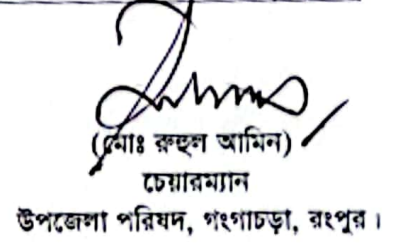 (মোঃ রুহুল আমিন)
চেয়ারম্যান
উপজেলা পরিষদ, গংগাচড়া, রংপুর।